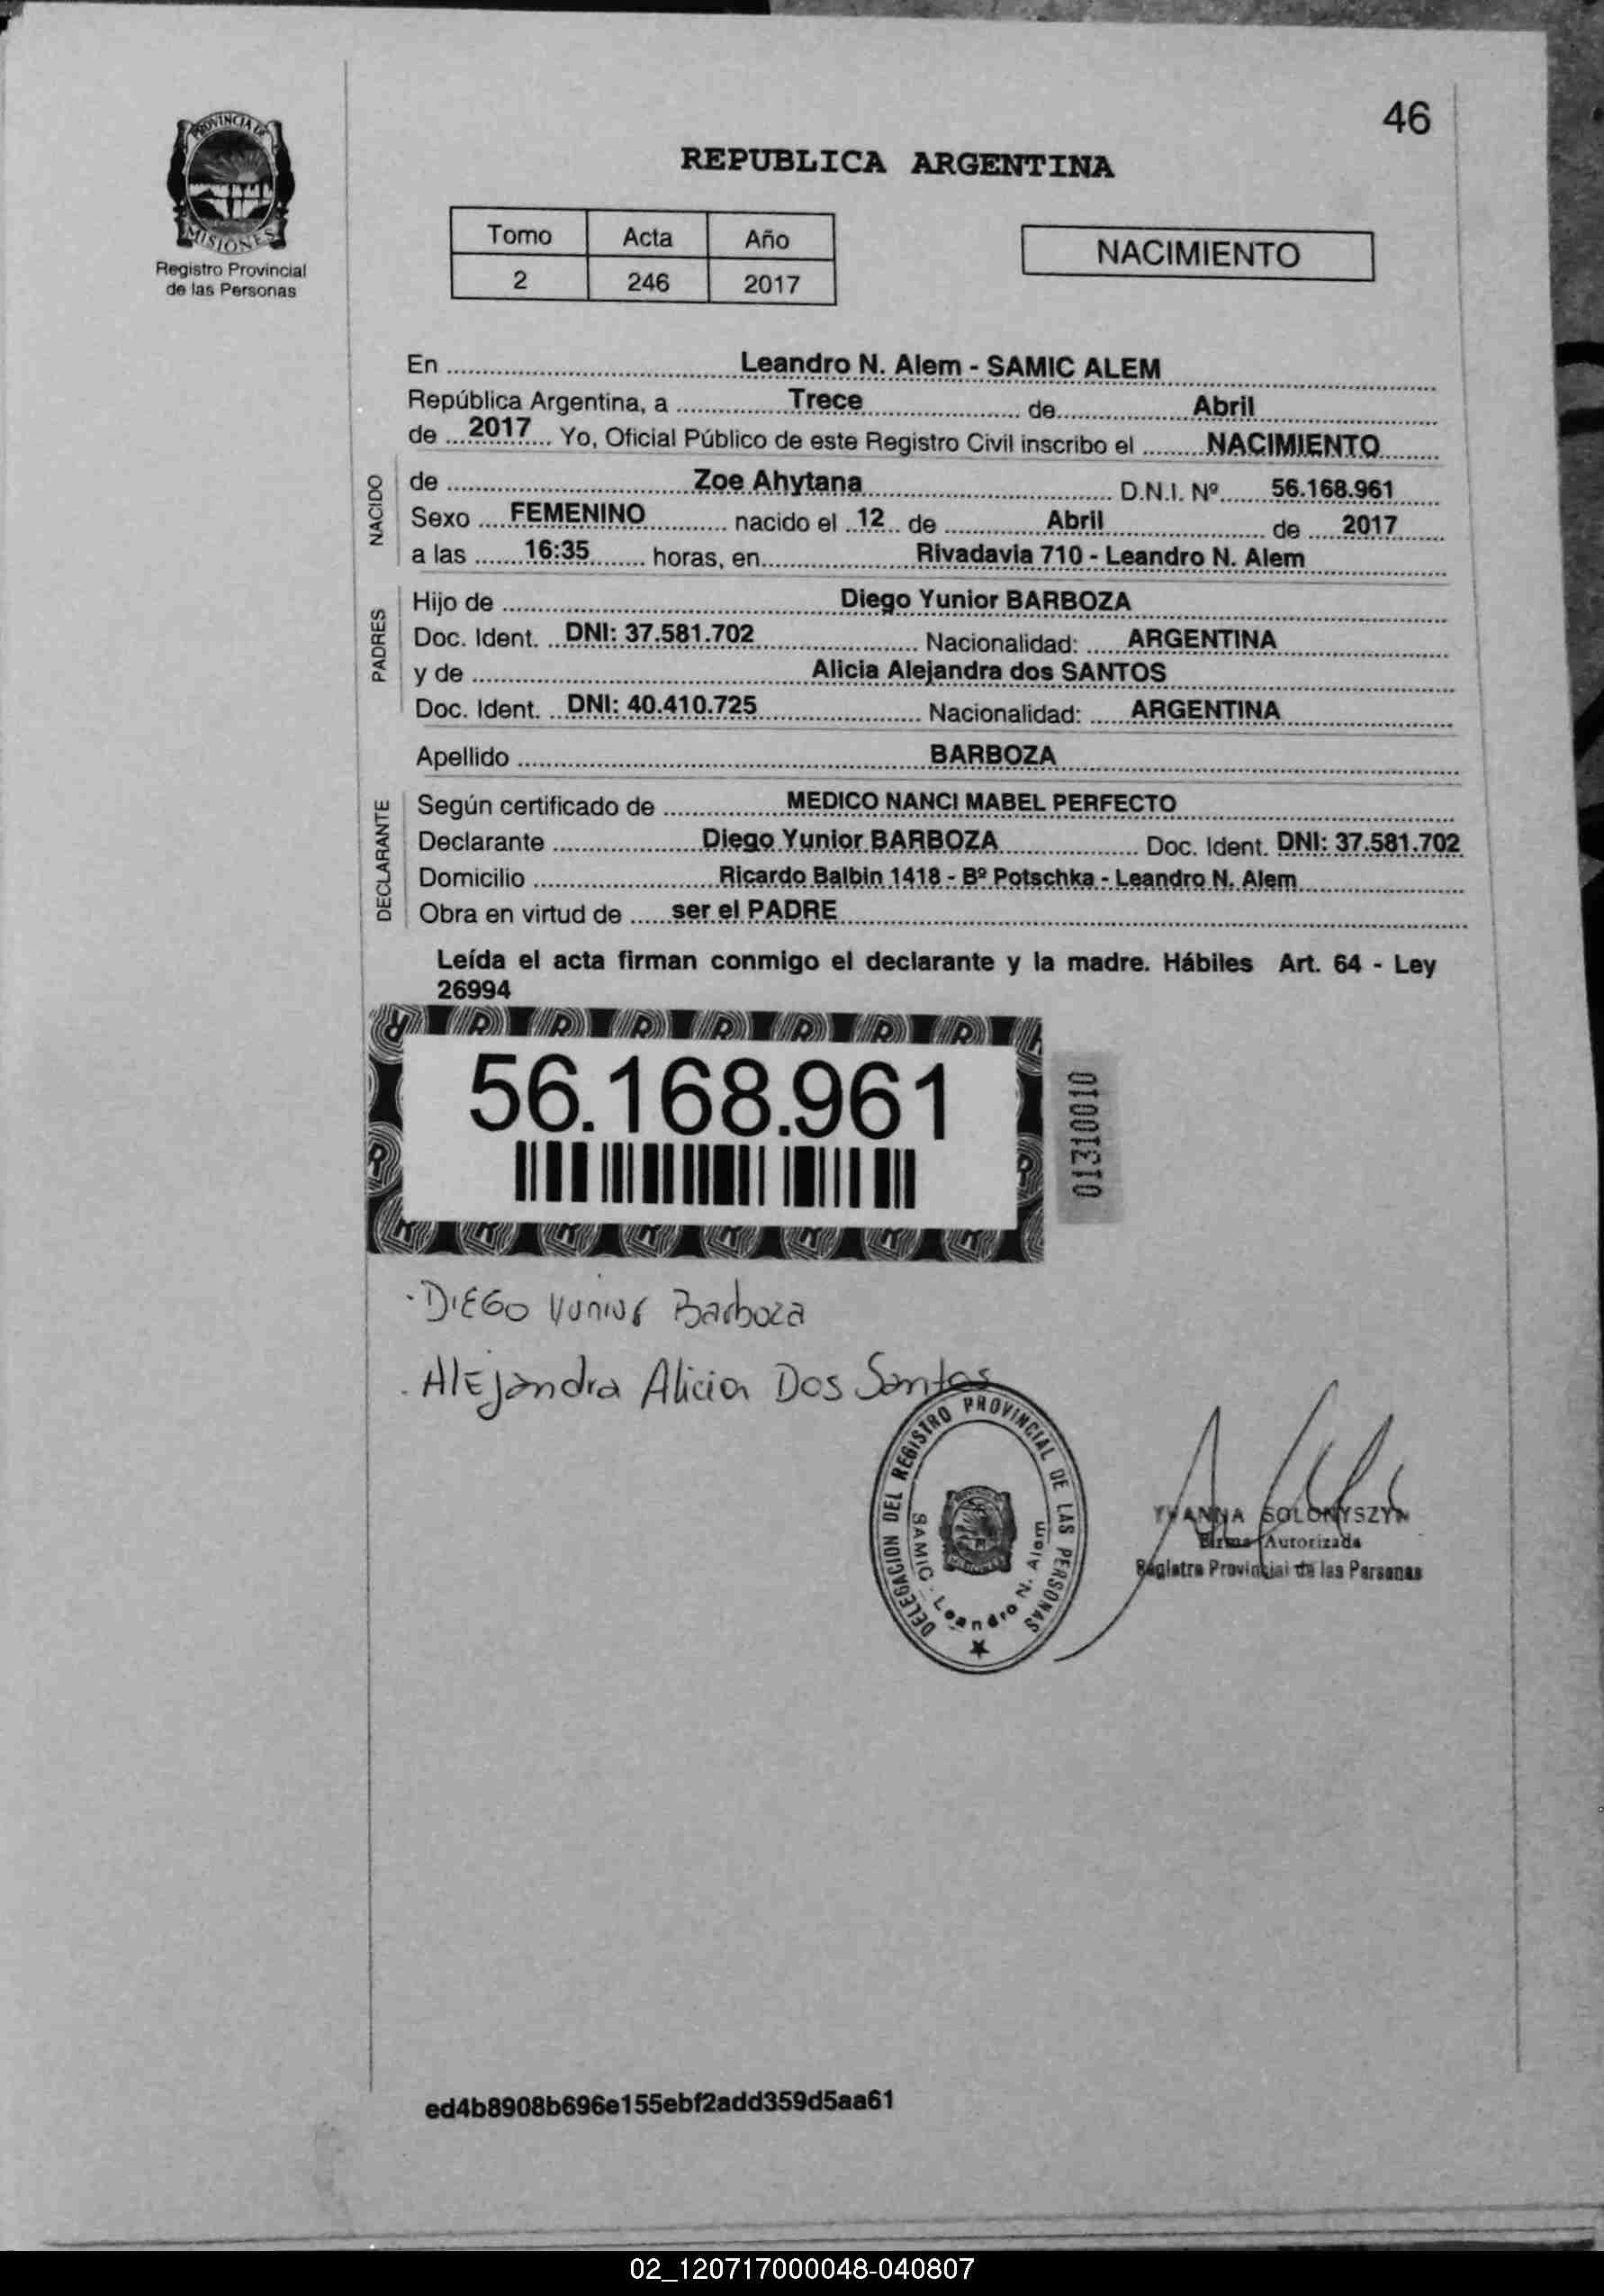 46
PROVINCIA DE
MISIONES
Registro Provincial
de las Personas
REPUBLICA ARGENTINA
Tomo Acta Año
2 246 2017
NACIMIENTO
En Leandro N. Alem - SAMIC ALEM
República Argentina, a Trece de Abril
de 2017 Yo, Oficial Público de este Registro Civil inscribo el NACIMIENTO
NACIDO
de Zoe Ahytana D.N.I. Nº 56.168.961
Sexo FEMENINO nacido el 12 de Abril de 2017
a las 16:35 horas, en Rivadavia 710 - Leandro N. Alem
PADRES
Hijo de Diego Yunior BARBOZA
Doc. Ident. DNI: 37.581.702 Nacionalidad: ARGENTINA
y de Alicia Alejandra dos SANTOS
Doc. Ident. DNI: 40.410.725 Nacionalidad: ARGENTINA
Apellido BARBOZA
DECLARANTE
Según certificado de MEDICO NANCI MABEL PERFECTO
Declarante Diego Yunior BARBOZA Doc. Ident. DNI: 37.581.702
Domicilio Ricardo Balbin 1418 - Bº Potschka - Leandro N. Alem
Obra en virtud de ser el PADRE
Leída el acta firman conmigo el declarante y la madre. Hábiles Art. 64 - Ley
26994
56.168.961
01310010
DIEGO Yunior Barboza
Alejandra Alicia Dos Santos
DELEGACION DEL REGISTRO PROVINCIAL DE LAS PERSONAS
SAMIC - Leandro N. Alem
YVANNA SOLONYSZYN
Firma Autorizada
Registro Provincial de las Personas
ed4b8908b696e155ebf2add359d5aa61
02_120717000048-040807